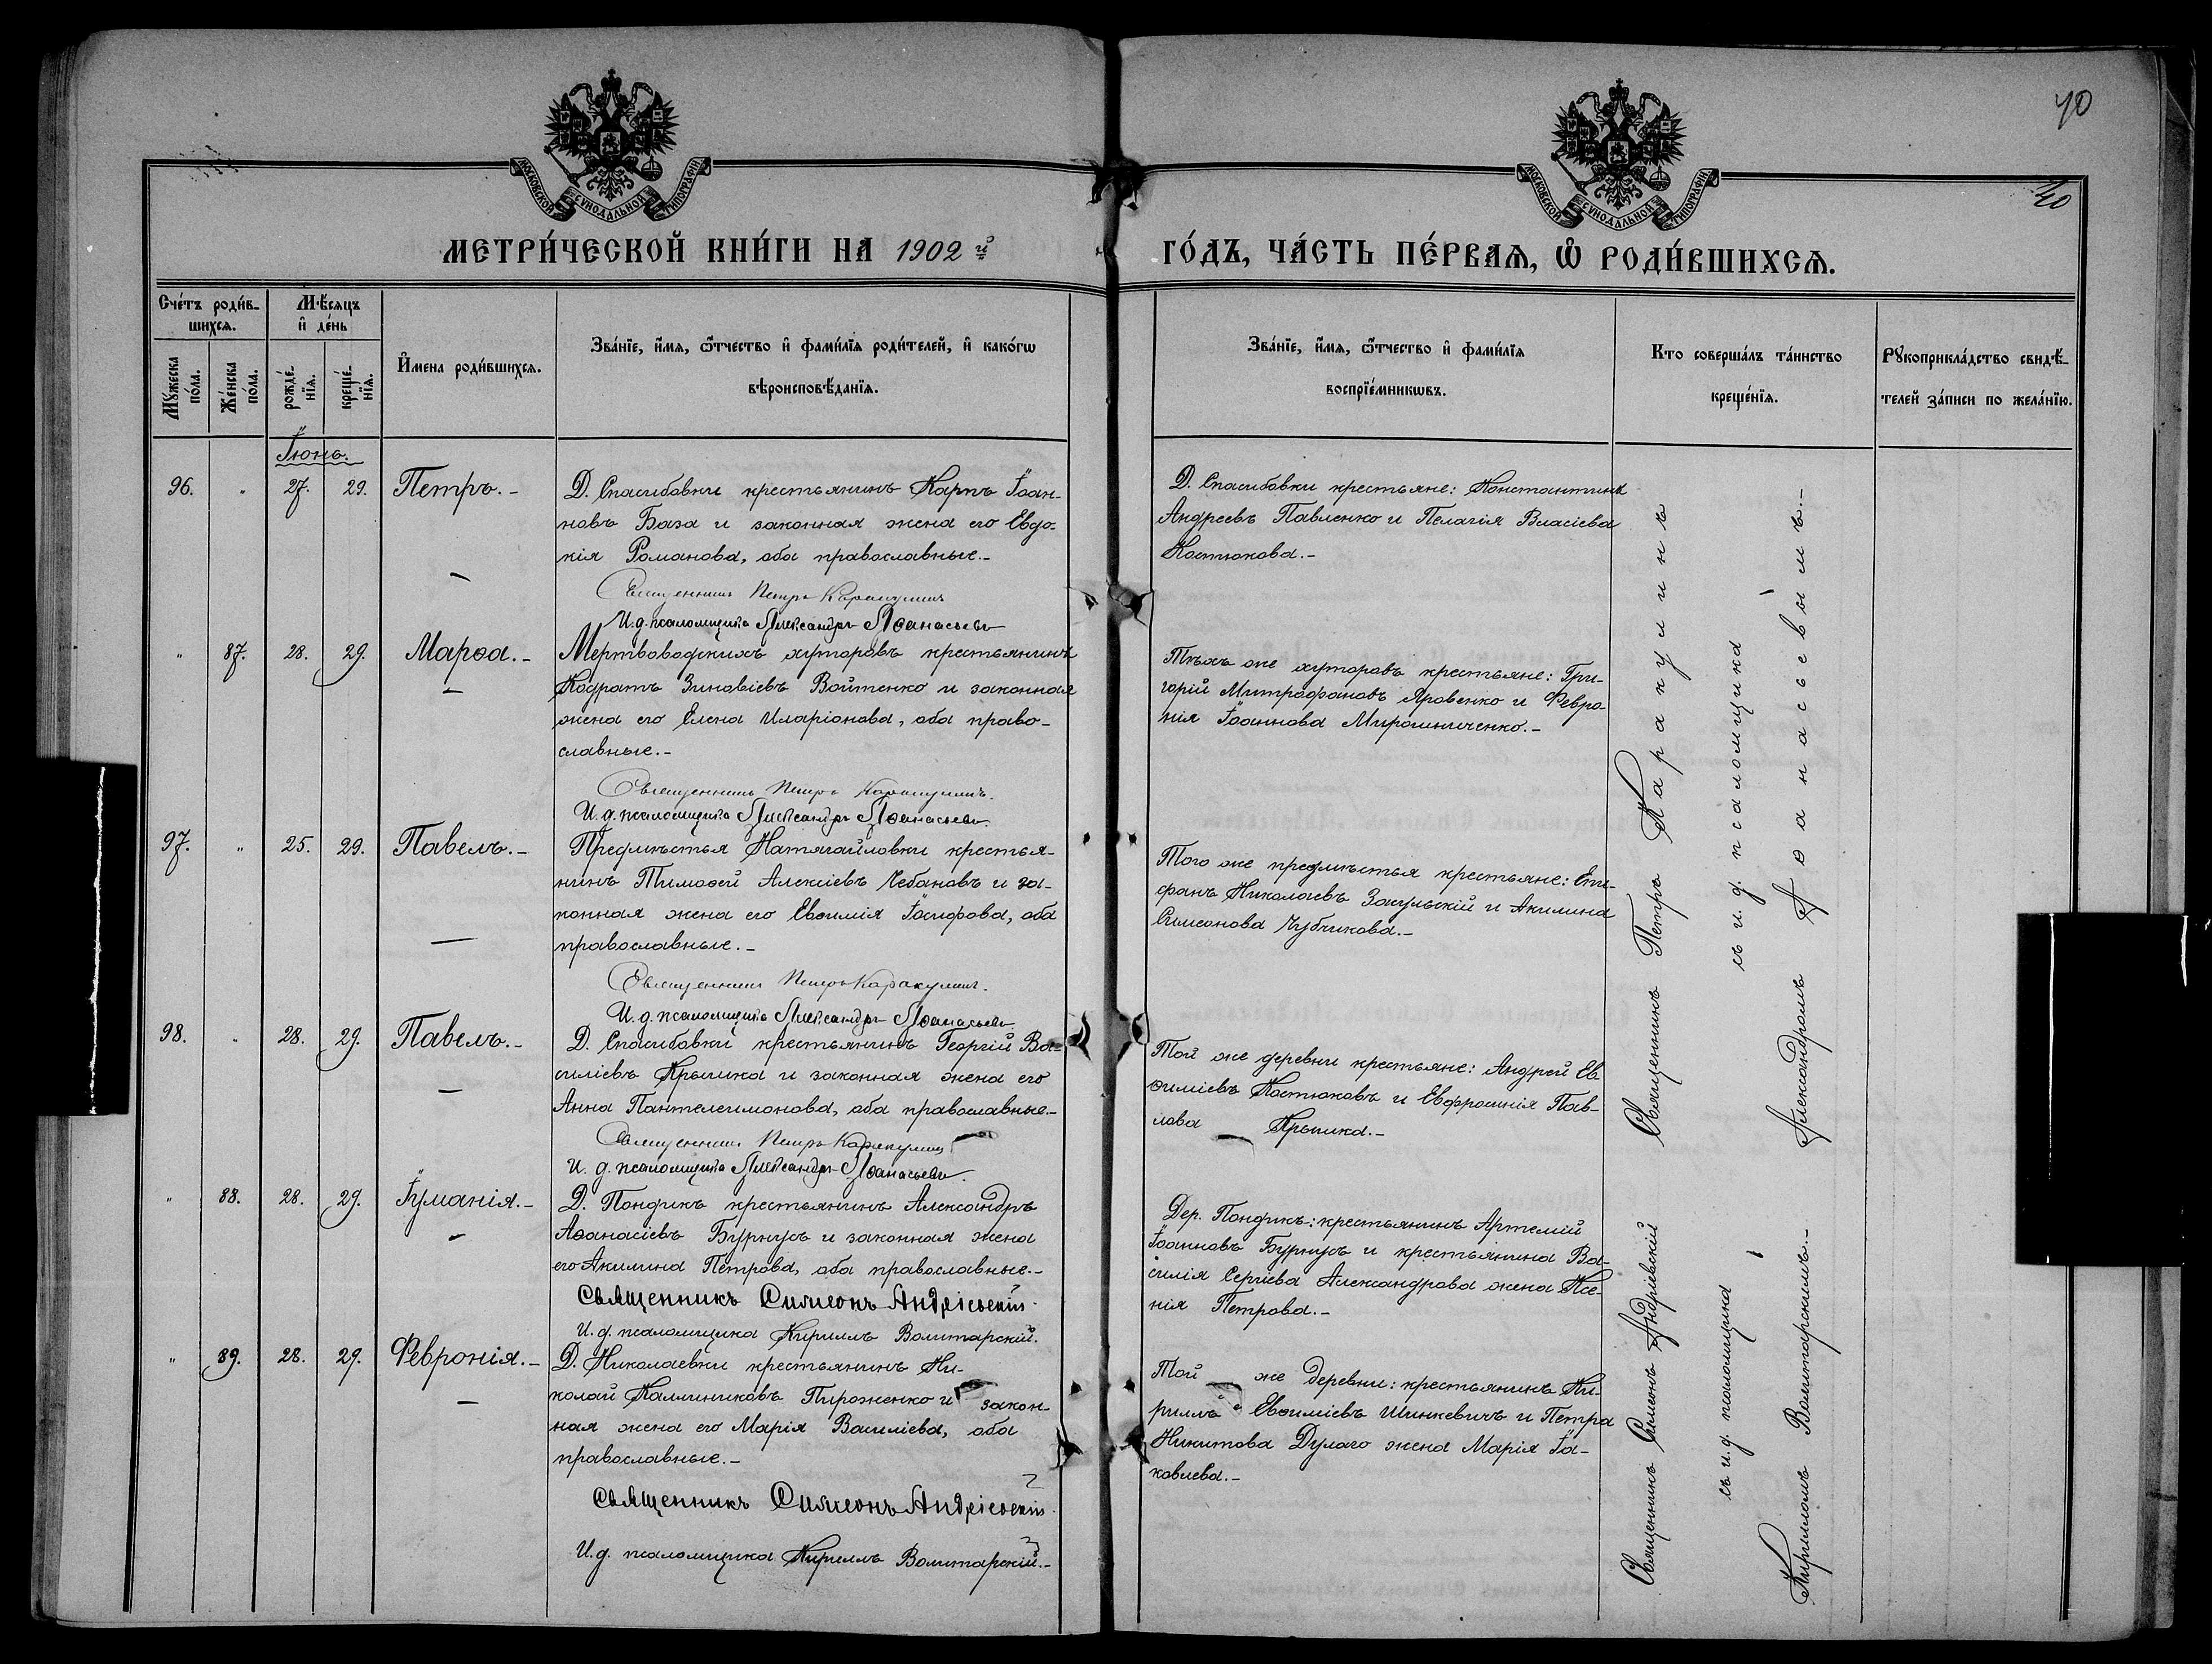 40
40
МОСКОВСКОЙ СУНОДАЛЬНОЙ ТИПОГРАФІИ
МОСКОВСКОЙ СУНОДАЛЬНОЙ ТИПОГРАФІИ
МЕТРИ́ЧЕСКОЙ КНИ́ГИ НА 1902 й
ГО́ДЪ, ЧА́СТЬ ПЕ́РВАѦ, Ѡ҆ РОДИ́ВШИХСѦ.
Счéтъ роди́в-
шихсѧ.
Мꙋжеска по́ла.
Же́нска по́ла.
Мѣ́сѧцъ
и҆ де́нь
рожде́-
нїѧ.
креще́-
нїѧ.
И҆мена роди́вшихсѧ.
Зва́нїе, и҆́мѧ, ѻ҆́тчество и҆ фами́лїѧ роди́телей, и҆ како́гѡ
вѣроисповѣ́данїѧ.
Зва́нїе, и҆́мѧ, ѻ҆́тчество и҆ фами́лїѧ
воспрїе́мникѡвъ.
Кто соверша́лъ та́инство
креще́нїѧ.
Рꙋкоприкла́дство свидѣ́-
телей за́писи по жела́нїю.
Іюнь.
96. " 27. 29. Петръ.-
Д. Спасибовки крестьянинъ Карпъ Іоан-
новъ База и законная жена его Евдо-
кія Романова, оба православные.-
Священникъ Петръ Каракулинъ
И. д. псаломщика Александръ Аѳанасьевъ
Д. Спасибовки крестьяне: Константинъ
Андреевъ Павленко и Пелагія Власіева
Костюкова.-
" 87. 28. 29. Марѳа.-
Мертвоводскихъ хуторовъ крестьянинъ
Кодратъ Зиновіевъ Войтенко и законная
жена его Елена Иларіонова, оба право-
славные.-
Священникъ Петръ Каракулинъ.
И. д. псаломщика Александръ Аѳанасьевъ.
Тѣхъ же хуторовъ крестьяне: Гри-
горій Митрофановъ Яровенко и Февро-
нія Іоаннова Мирошниченко.-
97. " 25. 29. Павелъ.-
Предмѣстья Натягайловки крестья-
нинъ Тимоѳей Алексіевъ Чебановъ и за-
конная жена его Евѳимія Іосифова, оба
православные.-
Священникъ Петръ Каракулинъ.
И. д. псаломщика Александръ Аѳанасьевъ
Того же предмѣстья крестьяне: Епи-
фанъ Николаевъ Закульскій и Акилина
Симеонова Чубчикова.-
98. " 28. 29. Павелъ.-
Д. Спасибовки крестьянинъ Георгій Ва-
силіевъ Крышка и законная жена его
Анна Пантелеимонова, оба православные.-
Священникъ Петръ Каракулинъ
И. д. псаломщика Александръ Аѳанасьевъ.
Той же деревни крестьяне: Андрей Ев-
ѳиміевъ Костюковъ и Евфросинія Пав-
лова Крышка.-
" 88. 28. 29. Іуманія.-
Д. Пондикъ крестьянинъ Александръ
Аѳанасіевъ Бурнусъ и законная жена
его Акилина Петрова, оба православные.-
Священникъ Симеонъ Андріевскій.
И. д. псаломщика Кириллъ Волитарскій.
Дер. Пондикъ: крестьянинъ Артемій
Іоанновъ Бурнусъ и крестьянина Ва-
силія Сергіева Александрова жена Ксе-
нія Петрова.-
" 89. 28. 29. Февронія.-
Д. Николаевки крестьянинъ Ни-
колай Калиниковъ Пироженко и закон-
ная жена его Марія Василіева, оба
православные.-
Священникъ Симеонъ Андріевскій.
И. д. псаломщика Кириллъ Волитарскій.-
Той же деревни: крестьянинъ Ки-
риллъ Евѳиміевъ Шинкевичъ и Петра
Никитова Дулаго жена Марія Іа-
ковлева.-
Священникъ Петръ Каракулинъ
съ и. д. псаломщика
Александромъ Аѳанасьевымъ.-
Священникъ Симеонъ Андріевскій
съ и. д. псаломщика
Кирилломъ Волитарскимъ.-